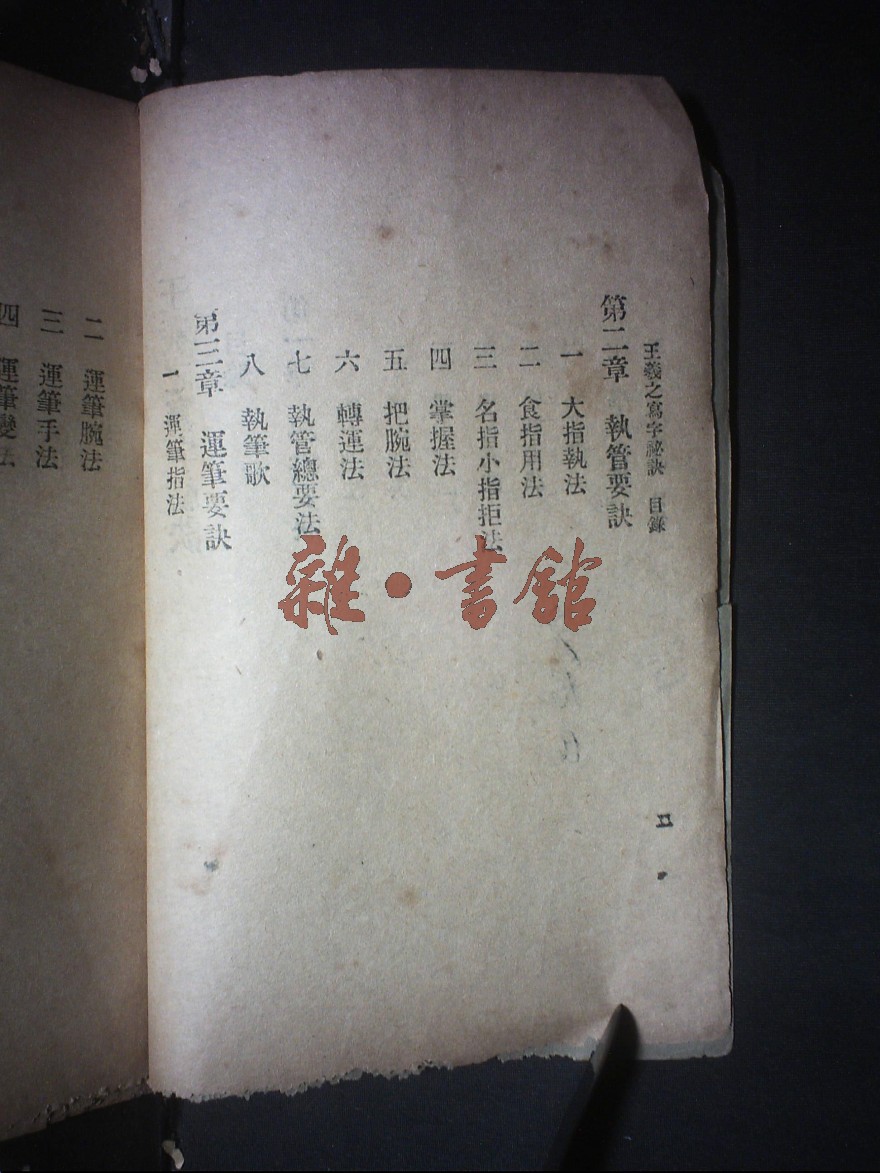 王羲之寫字祕訣 目錄
第二章 執管要訣
一 大指執法
二 食指用法
三 名指小指拒法
四 掌握法
五 把腕法
六 轉運法
七 執管總要法
八 執筆歌
第三章 運筆要訣
一 運筆指法
二 運筆腕法
三 運筆手法
四 運筆變法
雜·書館